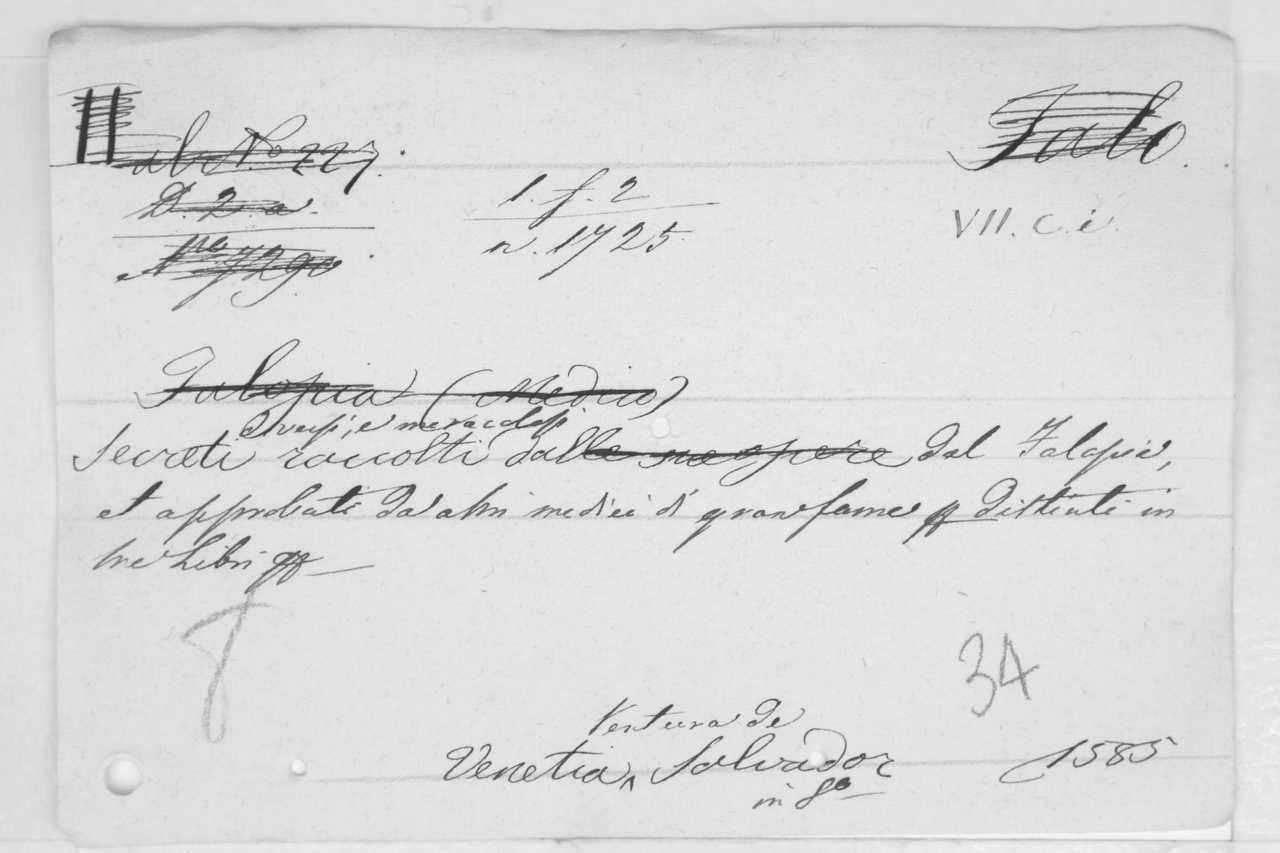 ab No 227.
Falo.
D. 2. a.
1. f. 2
VII. c. i.
Nro 7290.
n. 1725
Falopia (Medico)
Diversi, e meracolosi
Secreti raccolti dalle sue opere dal Falopia,
et approbati da altri medici di gran fama distinti in
tre Libri
34
Ventura de
Venetia ^ Salvador 1585
in 8o